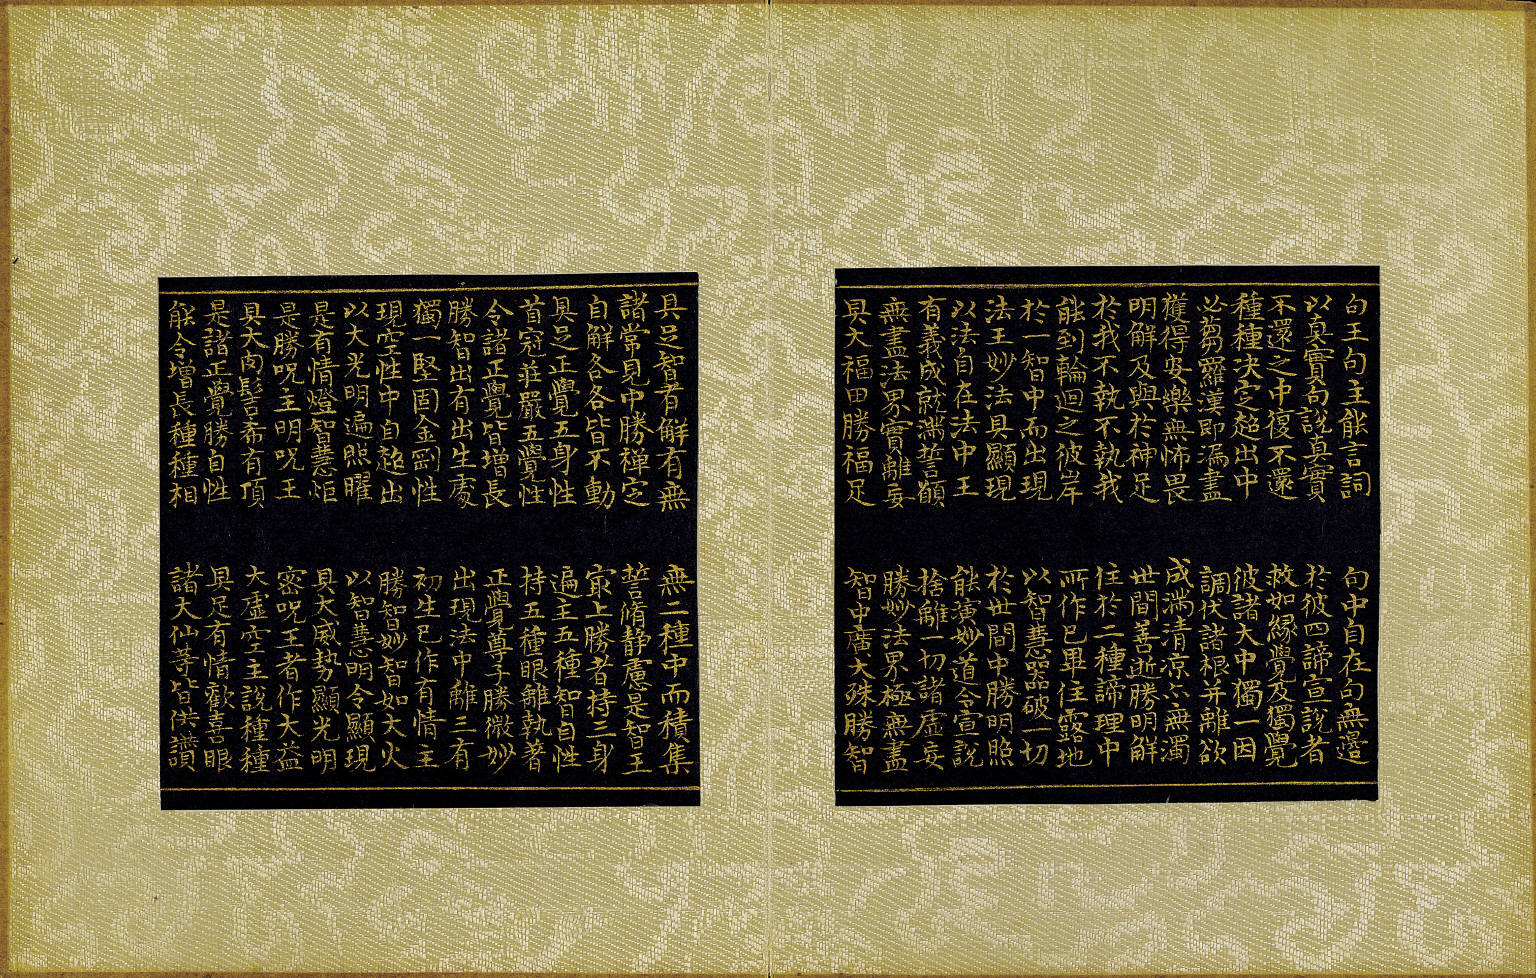 句王句主能言詞　句中自在句無邊
以真實句說真實　於彼四諦宣說者
不還之中復不還　救如緣覺及獨覺
種種決定超出中　彼諸大中獨一因
必蒭羅漢即漏盡　調伏諸根并離欲
獲得安樂無怖畏　成滿清凉亦無濁
明解及與於神足　世間善逝勝明解
於我不執不執我　住於二種諦理中
能到輪迴之彼岸　所作已畢住露地
於一智中而出現　以智慧器破一切
法王妙法具顯現　於世間中勝明照
以法自在法中王　能演妙道令宣說
有義成就滿誓願　捨離一切諸虛妄
無盡法界實離妄　勝妙法界極無盡
具大福田勝福足　智中廣大殊勝智
具足智者解有無　無二種中而積集
諸常見中勝禅定　誓脩静慮是智王
自解各各皆不動　㝡上勝者持三身
具足正覺五身性　遍主五種智自性
首冠莊嚴五覺性　持五種眼離執著
令諸正覺皆增長　正覺尊子勝微妙
勝智出有出生處　出現法中離三有
獨一堅固金剛性　初生已作有情主
現空性中自超出　勝智妙智如大火
以大光明遍照曜　以智慧明令顯現
是有情燈智慧炬　具大威勢顯光明
是勝呪主明呪王　密呪王者作大益
具大肉髻希有頂　大虛空主說種種
是諸正覺勝自性　具足有情歡喜眼
能令增長種種相　諸大仙等皆供讚